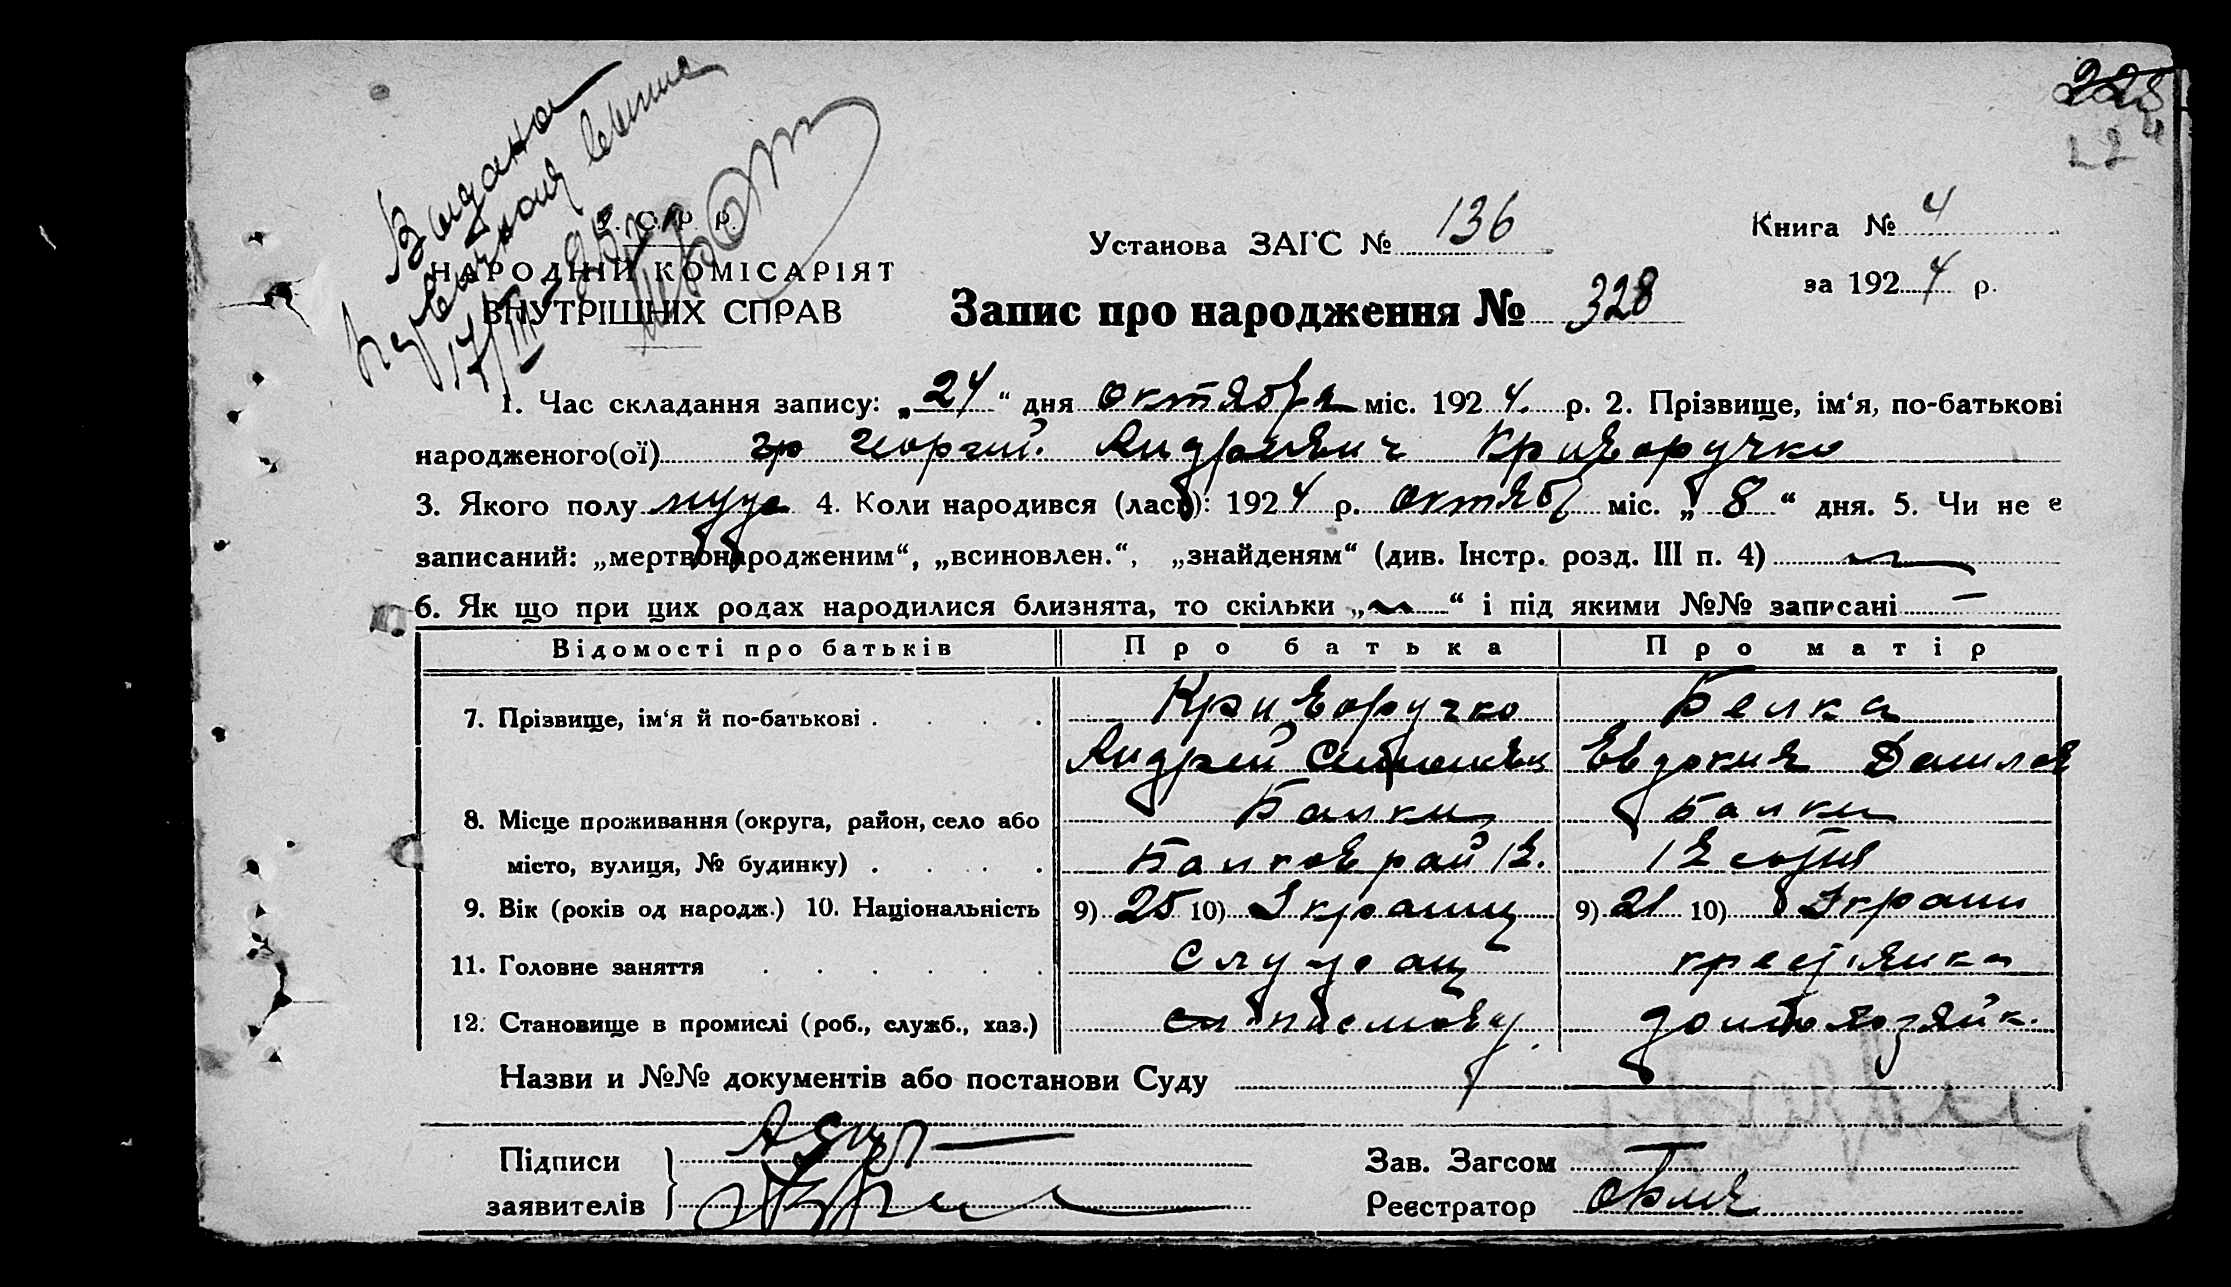 223
22
Видана
У. С. Р. Р.
Установа ЗАГС № 136
Книга № 4
НАРОДНІЙ КОМІСАРІЯТ
за 1924 р.
ВНУТРІШНІХ СПРАВ
17/III
Запис про народження № 328
1. Час складання запису: „24“ дня октября міс. 1924. р. 2. Прізвище, ім‘я, по-батькові
народженого(ої) гр Георгий Андреевич Криворучко
3. Якого полу муж 4. Коли народився (лась): 1924 р. октяб міс. „8“ дня. 5. Чи не є
записаний: „мертвонародженим“, „всиновлен.“, „знайденям“ (див. Інстр. розд. III п. 4) —
6. Як що при цих родах народилися близнята, то скільки „—“ і під якими №№ записані —
Відомості про батьків Про батька Про матір
7. Прізвище, ім‘я й по-батькові . . . . Криворучко Белка
Андрей Евдокия Данилов
8. Місце проживання (округа, район, село або Балки Балки
місто, вулиця, № будинку) . . . . Балков рай 12. 12 сотня
9. Вік (років од народж.) 10. Національність 9) 25 10) Украинц 9) 21 10) Украин
11. Головне заняття . . . . . . Служащ крестьянка
12. Становище в промислі (роб., служб., хаз.) домохозяйк.
Назви и №№ документів або постанови Суду
Підписи
Зав. Загсом
заявителів
Реєстратор